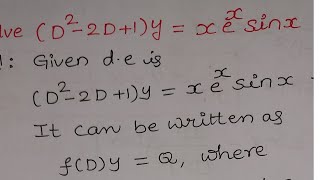 (D²-2D+1)y = xeˣsinx
: Given d.e is
(D²-2D+1)y = xeˣsinx
It can be written as
f(D)y = Q, where